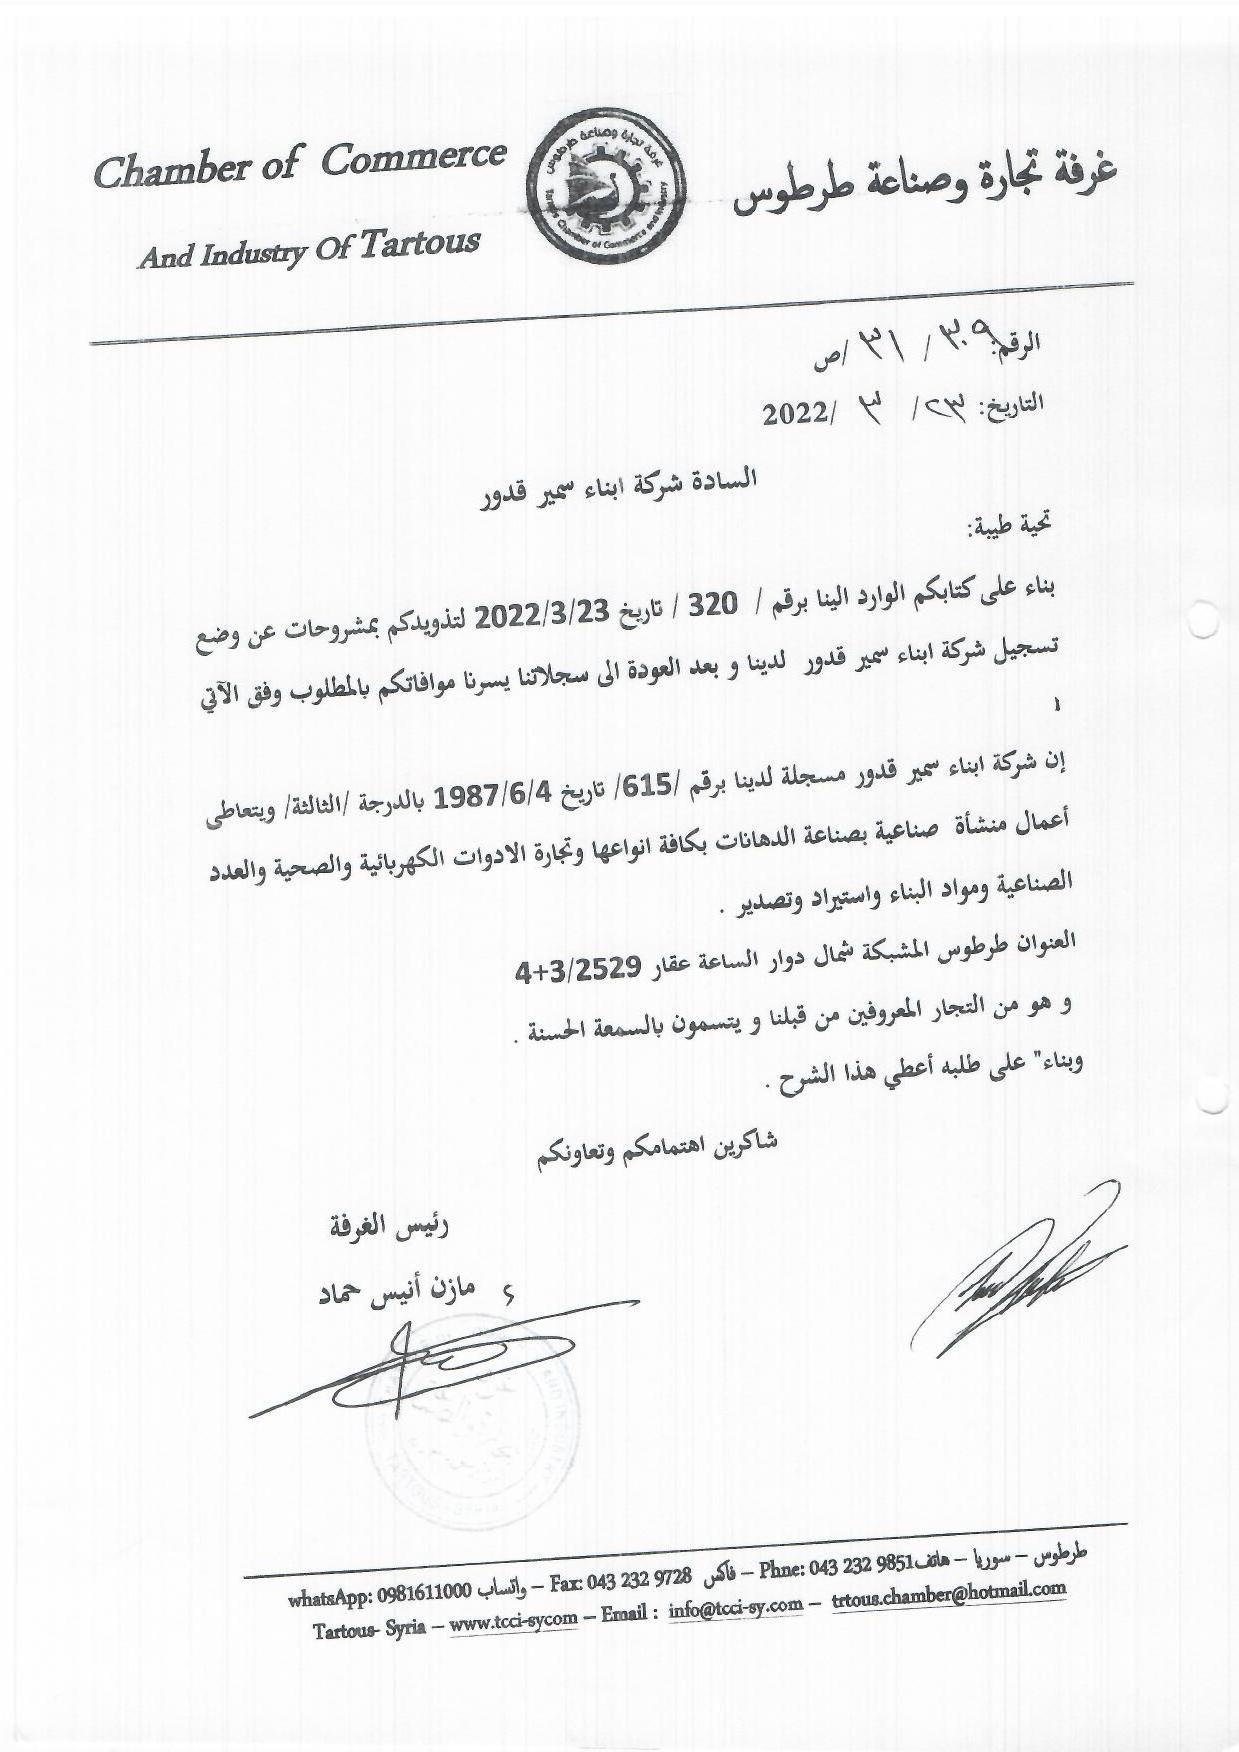 Chamber of Commerce
And Industry Of Tartous
غرفة تجارة وصناعة طرطوس
غرفة تجارة وصناعة طرطوس
Tartous Chamber of Commerce and Industry
الرقم: ٣٠٩ / ٣١ /ص
التاريخ: ٢٣/ ٣ /2022
السادة شركة ابناء سمير قدور
تحية طيبة:
بناء على كتابكم الوارد الينا برقم / 320 / تاريخ 2022/3/23 لتذويدكم بمشروحات عن وضع
تسجيل شركة ابناء سمير قدور لدينا و بعد العودة الى سجلاتنا يسرنا موافاتكم بالمطلوب وفق الآتي
:
إن شركة ابناء سمير قدور مسجلة لدينا برقم /615/ تاريخ 1987/6/4 بالدرجة /الثالثة/ ويتعاطى
أعمال منشأة صناعية بصناعة الدهانات بكافة انواعها وتجارة الادوات الكهربائية والصحية والعدد
الصناعية ومواد البناء واستيراد وتصدير .
العنوان طرطوس المشبكة شمال دوار الساعة عقار 2529/3+4
و هو من التجار المعروفين من قبلنا و يتسمون بالسمعة الحسنة .
وبناء" على طلبه أعطي هذا الشرح .
شاكرين اهتمامكم وتعاونكم
رئيس الغرفة
مازن أنيس حماد
طرطوس – سوريا – هاتف Phne: 043 232 9851 – فاكس Fax: 043 232 9728 – واتساب whatsApp: 0981611000
Tartous- Syria – www.tcci-sycom – Email : info@tcci-sy.com – trtous.chamber@hotmail.com